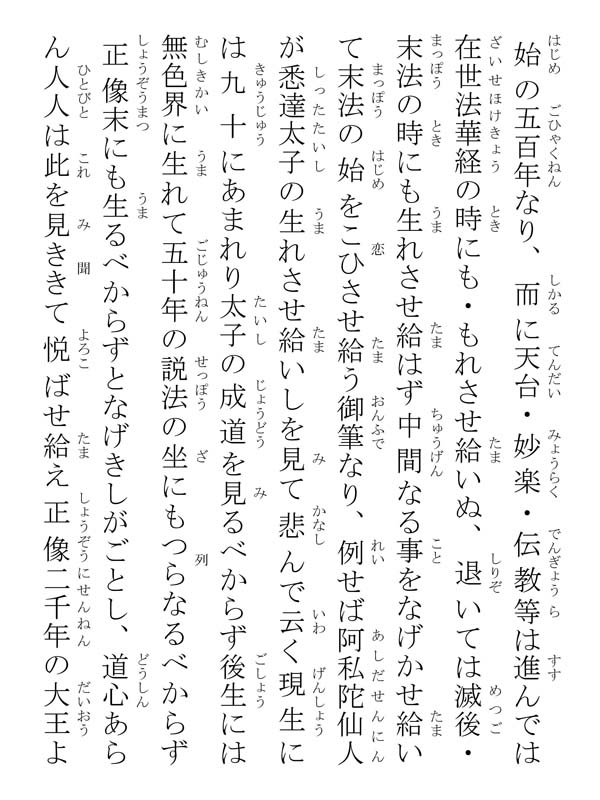 始の五百年なり、而に天台・妙楽・伝教等は進んでは
在世法華経の時にも・もれさせ給いぬ、退いては滅後・
末法の時にも生れさせ給はず中間なる事をなげかせ給い
て末法の始をこひさせ給う御筆なり、例せば阿私陀仙人
が悉達太子の生れさせ給いしを見て悲んで云く現生に
は九十にあまれり太子の成道を見るべからず後生には
無色界に生れて五十年の説法の坐にもつらなるべからず
正像末にも生るべからずとなげきしがごとし、道心あら
ん人人は此を見ききて悦ばせ給え正像二千年の大王よ